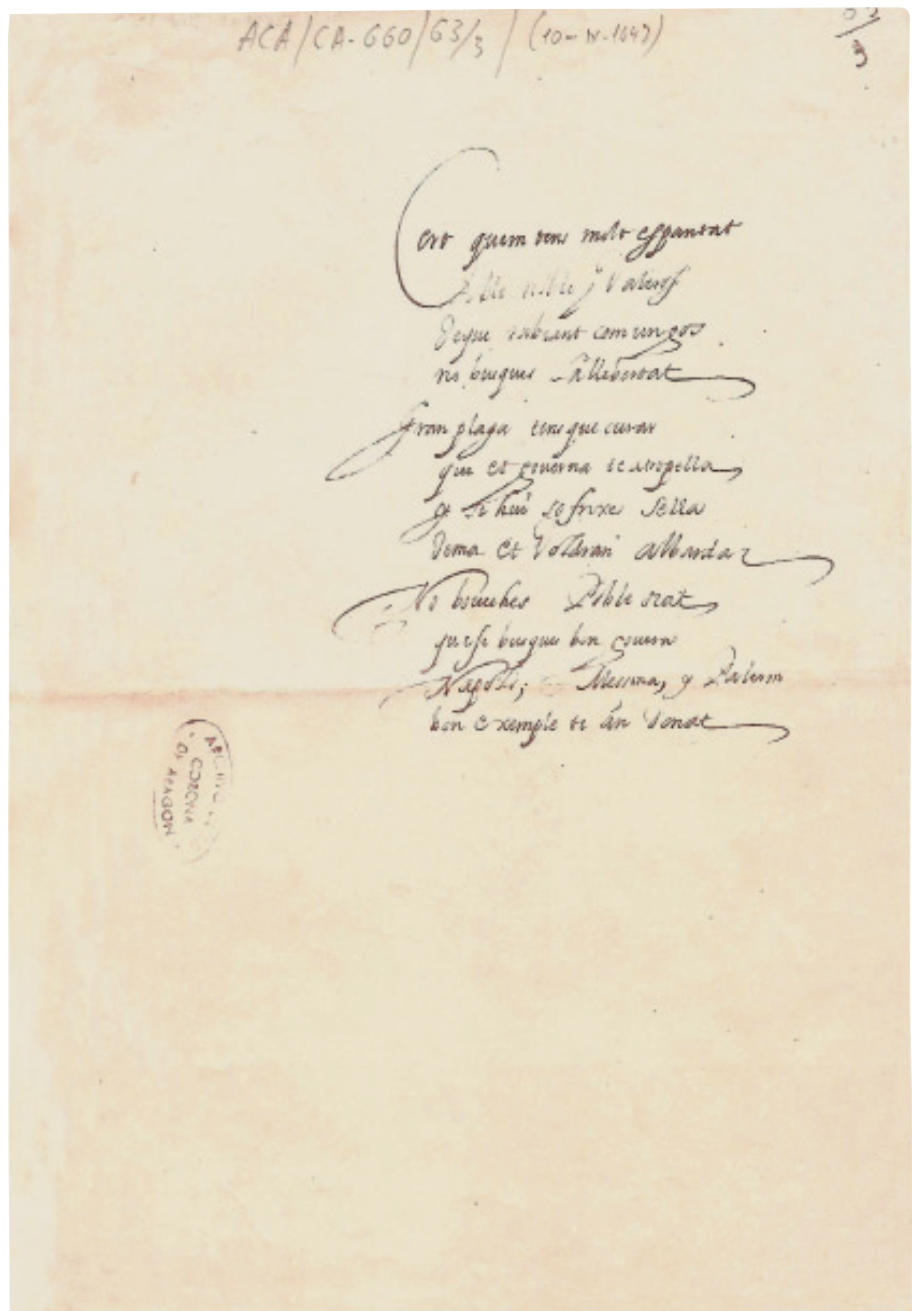 ACA/CA-660/63/3 (10-IX-1647)
63/3
Cert quem tens molt espantat
Poble noble y Valeros
de que rabiant com un gos
no busques ta llibertat
Gran plaga tens que curar
qui et governa te atropella
y si hui sofrixes sella
dema et voldran albardar
No Poble
que si busques bon govern
Napols; Messina, y Palerm
bon exemple te án donat
ARCHIVO
CORONA
DE ARAGON